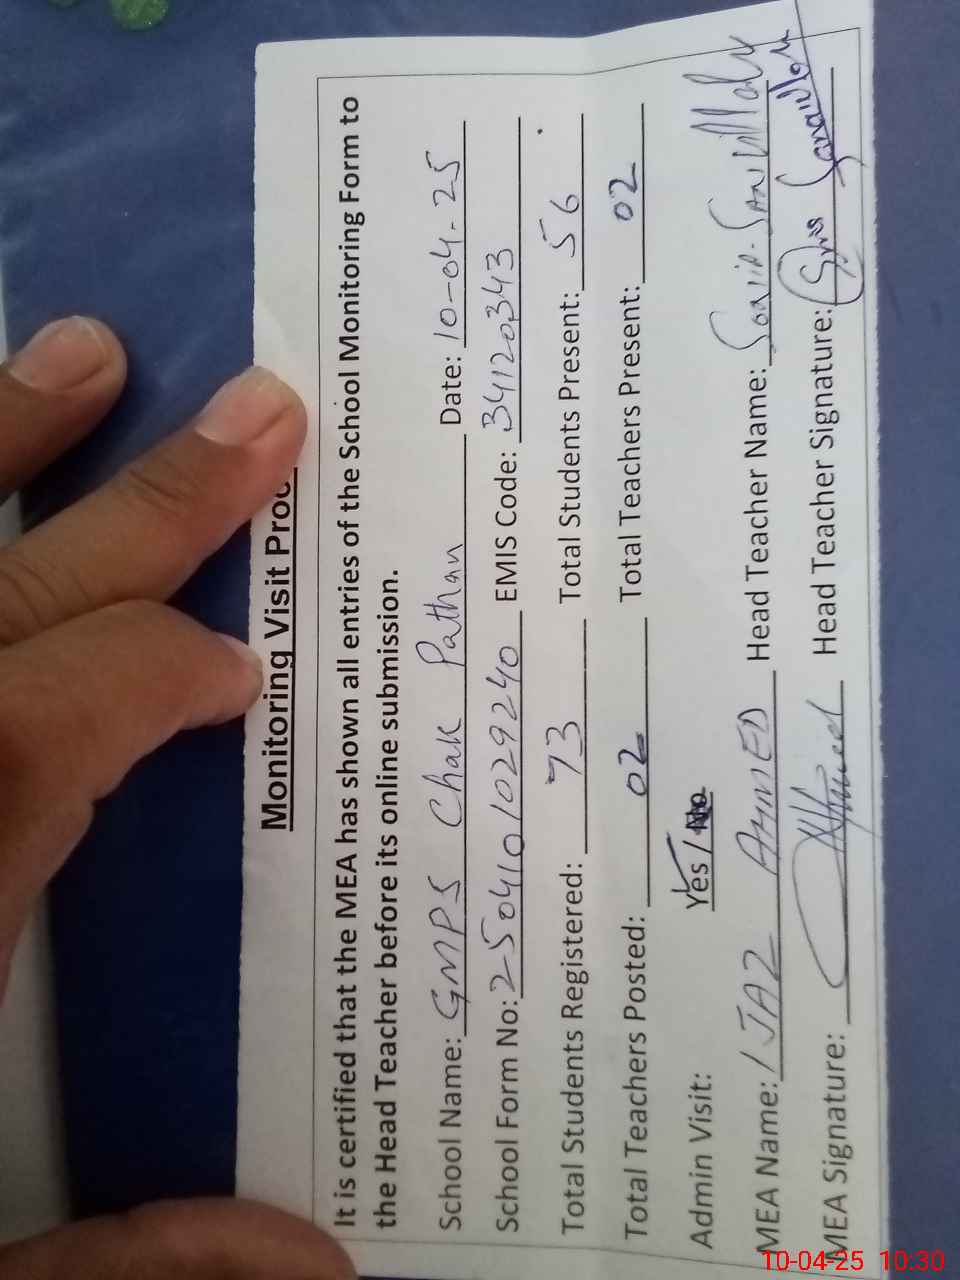 Monitoring Visit Proc
It is certified that the MEA has shown all entries of the School Monitoring Form to
the Head Teacher before its online submission.
School Name: GMPS Chak Pathan Date: 10-04-25
School Form No: 250410/029240 EMIS Code: 34120343
Total Students Registered: 73 Total Students Present: 56
Total Teachers Posted: 02 Total Teachers Present: 02
Admin Visit: Yes / No
MEA Name: IJAZ AHMED Head Teacher Name:
MEA Signature: Head Teacher Signature:
10-04-25 10:30